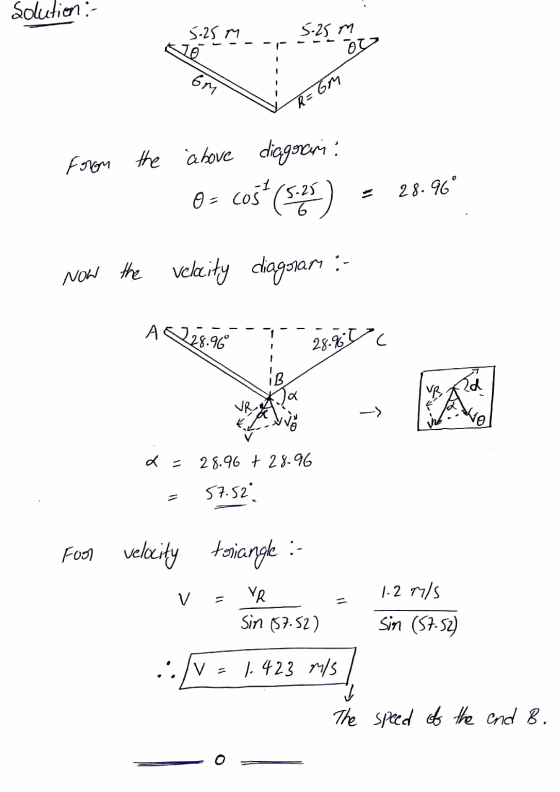 Solution:-
5.25 M 5.25 M
θ θ
6M R=6M
From the above diagram:
θ = cos⁻¹ (5.25/6) = 28.96°
Now the velocity diagram:-
A 28.96° 28.96° C
B
α
VR α Vθ
V
→
VR α
α
V Vθ
α = 28.96 + 28.96
= 57.52°.
For velocity triangle:-
V = VR / Sin (57.52) = 1.2 m/s / Sin (57.52)
∴ V = 1.423 m/s
↓
The speed of the end B.
0